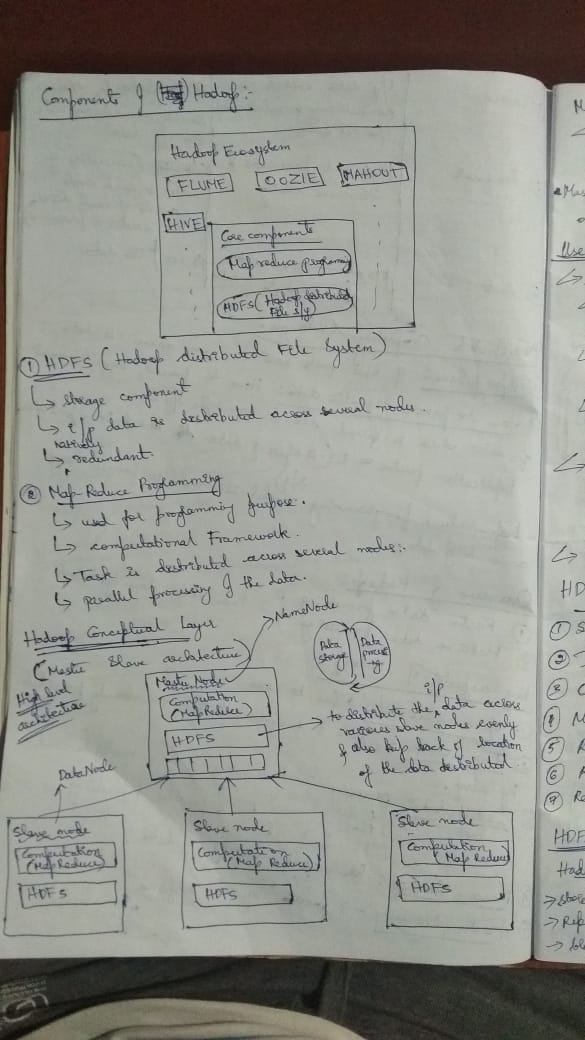 Components of Hadoop:-
Hadoop Ecosystem
FLUME
OOZIE
MAHOUT
HIVE
Core components
Map reduce programming
HDFS (Hadoop distributed
File s/y)
① HDFS (Hadoop distributed File System)
↳ storage component
↳ i/p data is distributed across several nodes.
natively
↳ redundant.
② Map-Reduce Programming
↳ used for programming purpose.
↳ computational Framework.
↳ Task is distributed across several nodes:.
↳ parallel processing of the data.
Hadoop Conceptual Layer
NameNode
(Master Slave architecture)
High level
architecture
Data
storage
Data
process
ing
Master Node
Computation
(MapReduce)
HDFS
→ to distribute the i/p data across
various slave nodes evenly
& also keep track of location
of the data distributed.
DataNode
Slave node
Computation
(Map Reduce)
HDFS
Slave node
Computation
(Map Reduce)
HDFS
Slave node
Computation
(Map Reduce)
HDFS
M
Use
HD
① S
②
③ C
④ M
⑤ R
⑥ A
⑦ Re
HDF
Had
→ Stor
→ Rep